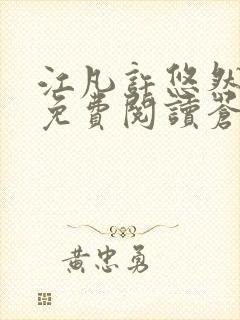 江凡許悠然
免費閱讀蒼
黃忠勇